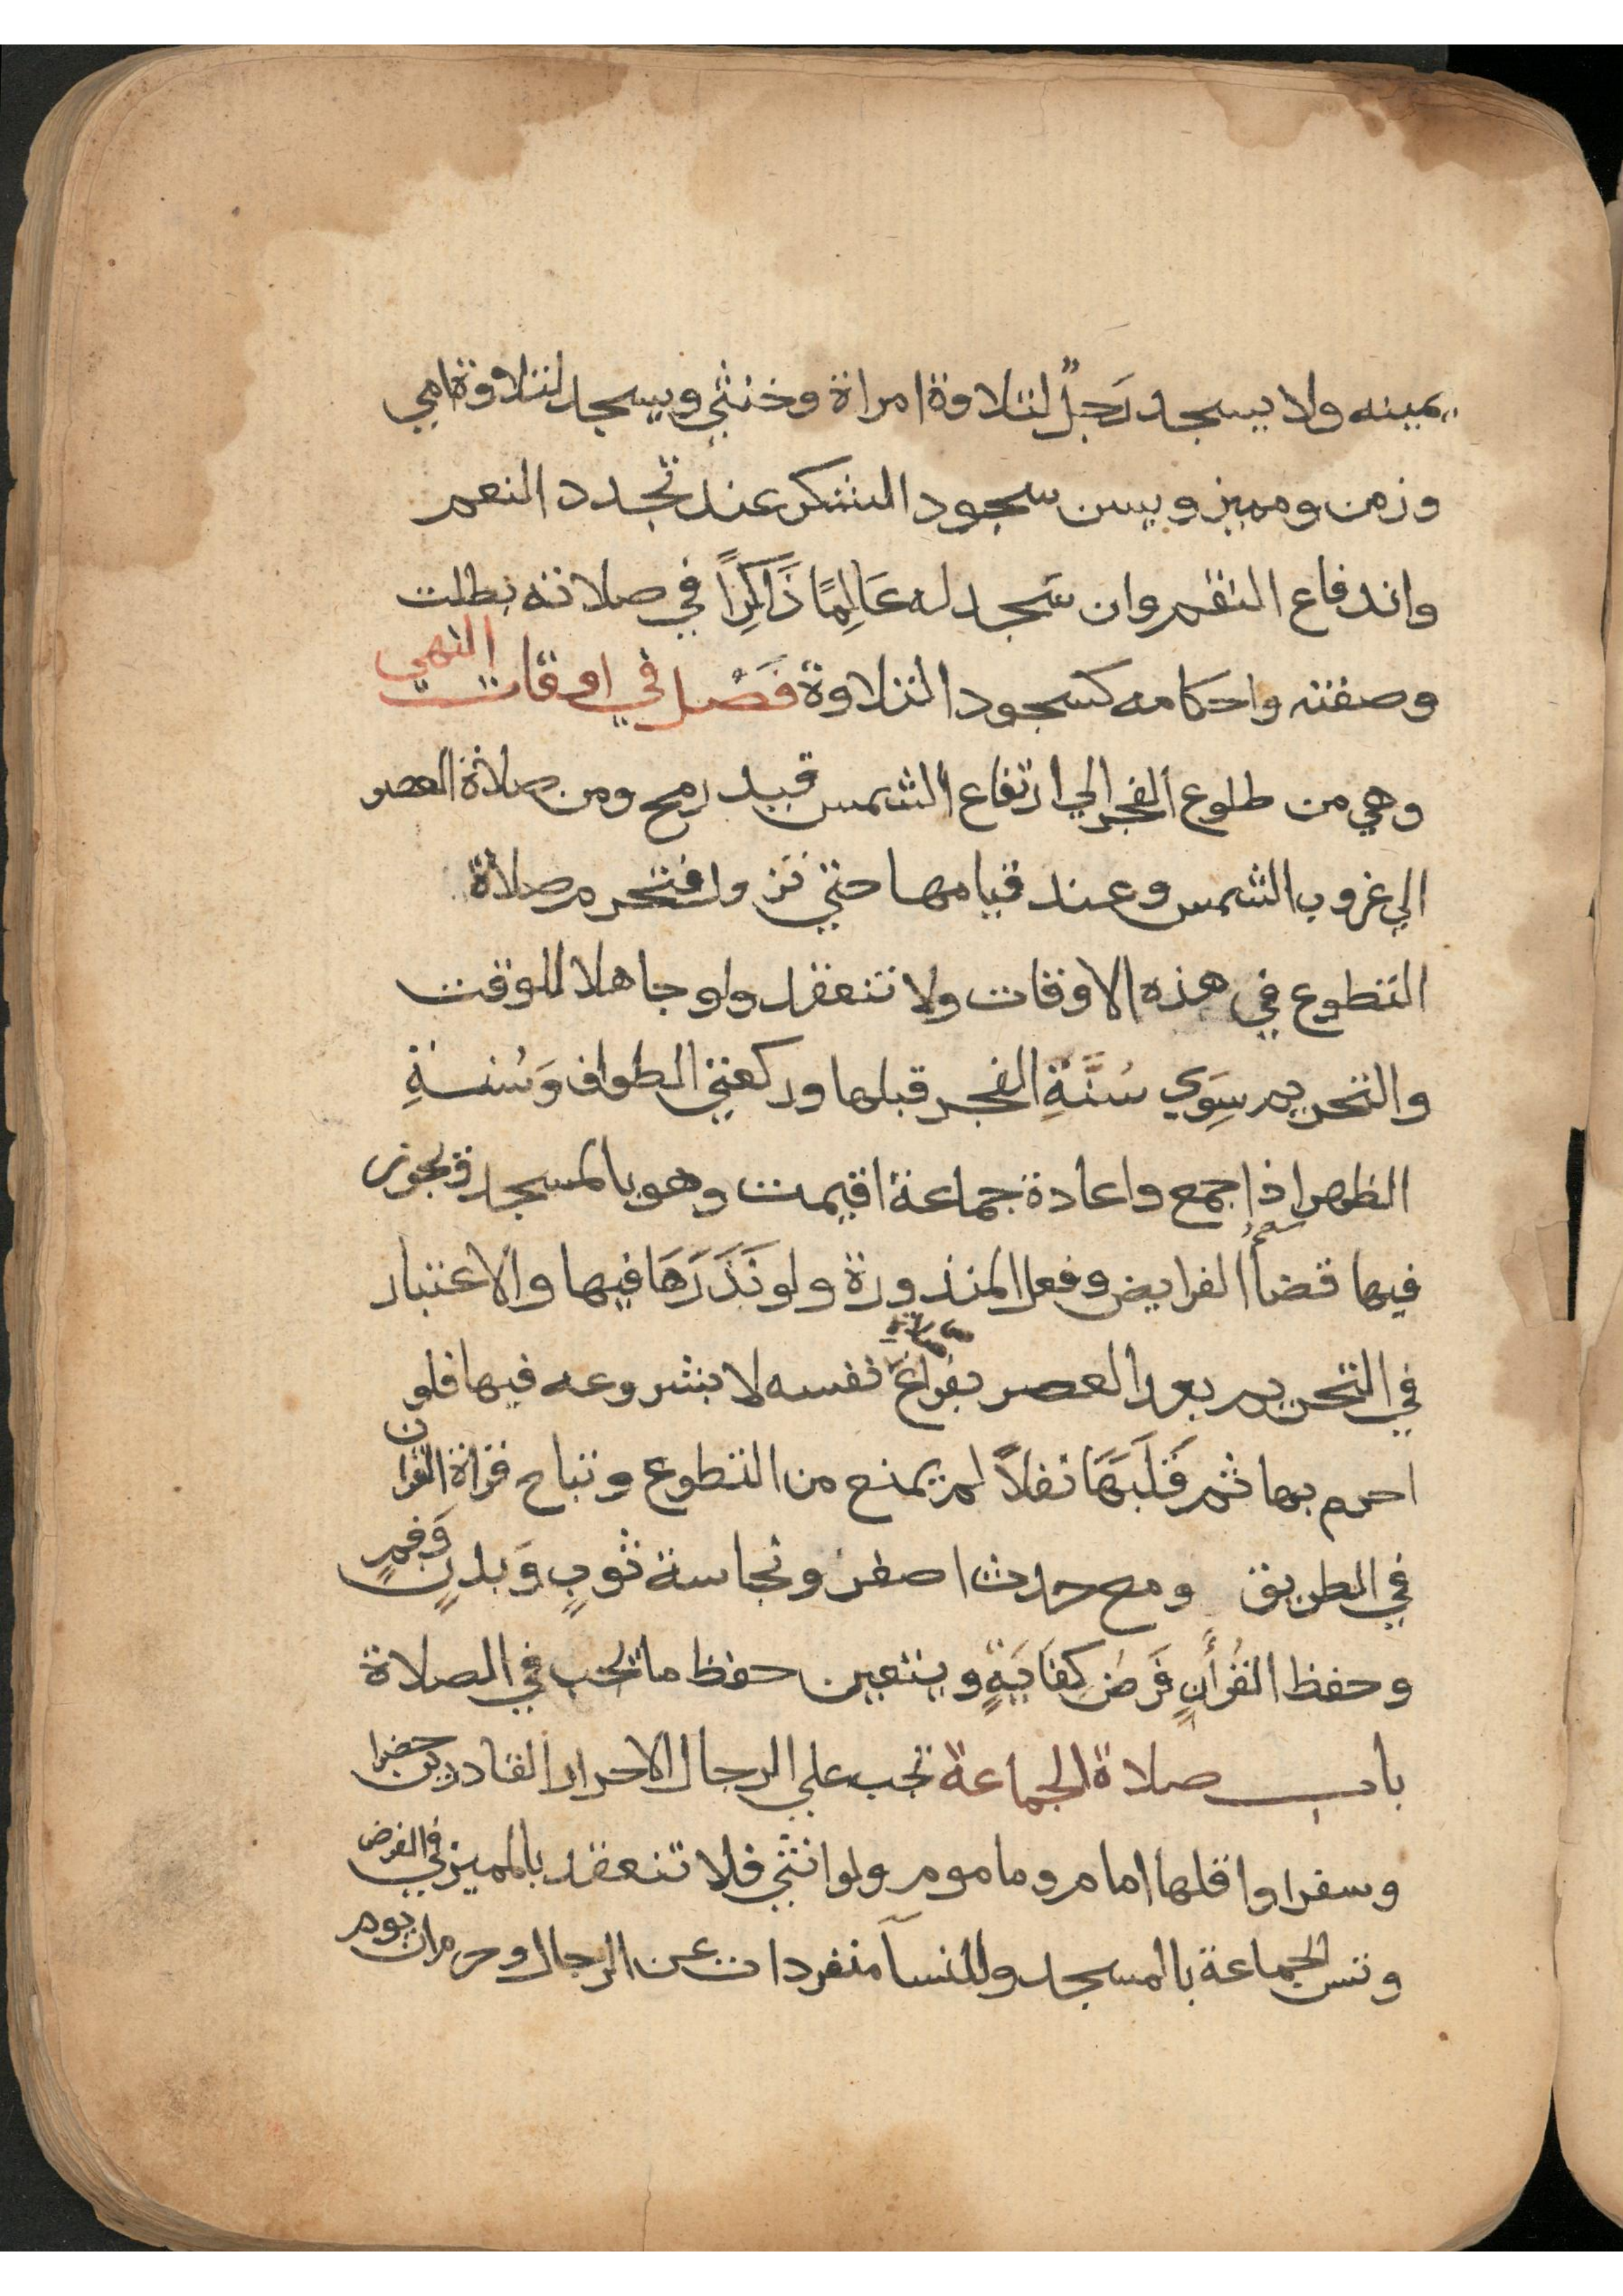 يمينه ولا يسجد رَجُلٌ لتلاوة امراة وخنثي ويسجد لتلاوة امي
وزمن ومميز ويسن سجود الشكر عند تجدد النعم
واندفاع النقم وان سَجد له عَالِمًا ذَاكِرًا في صلاته بطلت
وصفته واحكامه كسجود التلاوة فَصْل في اوقات النهي
وهي من طلوع الفجر الي ارتفاع الشمس قيد رمح ومن صلاة العصر
الي غروب الشمس وعند قيامها حتي تز ول فتحرم صلاة
التطوع في هذه الاوقات ولا تنعقد ولو جاهلا للوقت
والتحريم سِوَي سُنَّةِ الفجر قبلها وركعتي الطواف وَسُنةِ
الظهر اذا جمع واعادة جماعة اقيمت وهو بالمسجد ويجوز
فيها قضأ الفرايض وفعل المنذورة ولو نَذَرَهَا فيها والاعتبار
في التحريم بعد العصر بفراغ صلاة نفسه لا بشروعه فيها فلو
احرم بها ثم قَلَبَهَا نفلاً لم يمنع من التطوع وتباح قراة القران
في الطريق ومع حدث اصغر ونجاسة ثوبٍ وَبدنٍ وَفمٍ
وحفظ القُرأنِ فَرضُ كِفَايَةٍ ويتعين حفظ ما يجب في الصلاة
باب صلاة الجماعة تجب علي الرجال الاحرار القادرين حضرا
وسفرا واقلها امام وماموم ولو انثي فلا تنعقد بالمميز في الفرض
وتسن الجماعة بالمسجد وللنسآ منفردات عن الرجال وحرم ان يوم